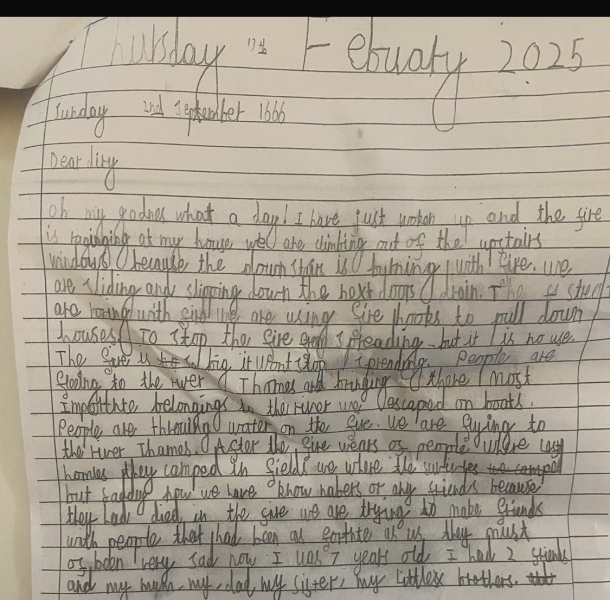 Thursday 17th Febuaty 2025
Sunday 2nd September 1666
Dear diry
oh my godnes what a day! I have just woken up and the fire
is beginning at my house we are climbing out of the upstairs
windows because the downstairs is burning with fire. we
are sliding and slipping down the next doors drain. The
are with fire we are using fire hooks to pull down
houses To stop the fire from spreading but it is no use
The fire is so big it wont stop spreading. People are
going to the river Thames and bringing there most
importnte belongings in the river we escaped on boats.
People are throwing water on the fire. we are trying to
the river Thames. After the fire of people where
homles they camped in fields we where the
but how we have know nabers or any friends because
they had died in the fire we are trying to make friends
with people that had been as as us they must
of been very sad now I was 7 years old I had 2 friends
and my mum, my dad, my sister, my brothers.